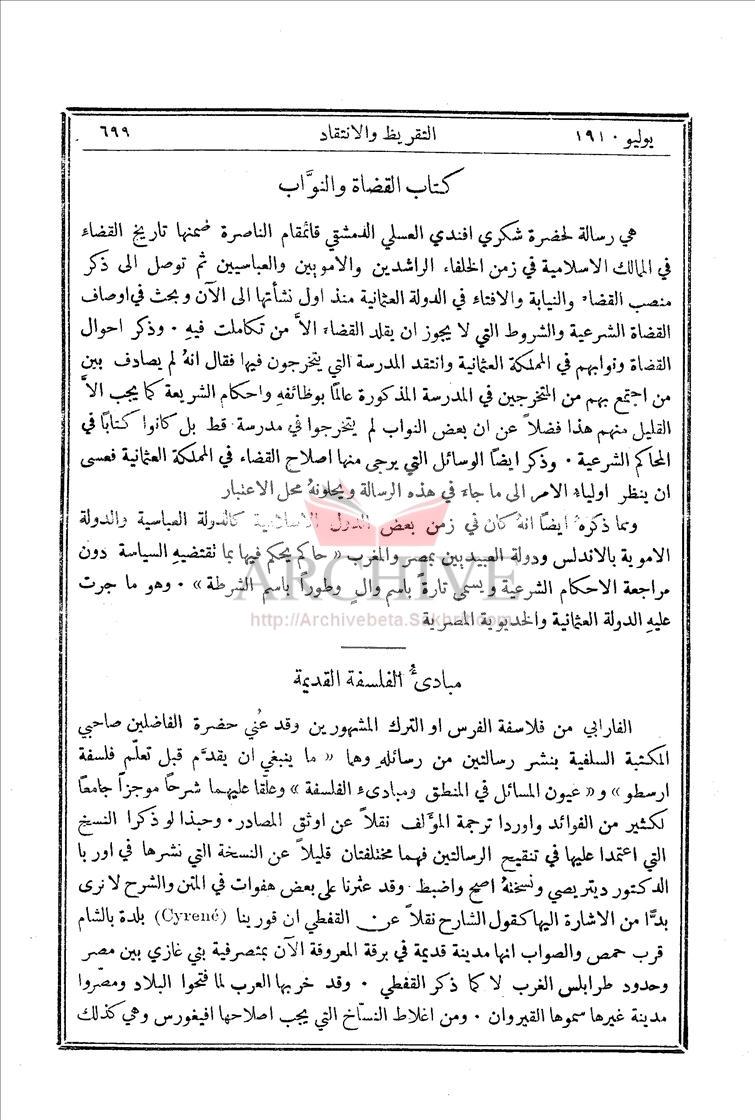 يوليو ١٩١٠ التقريظ والانتقاد ٦٩٩
كتاب القضاة والنوَّاب
هي رسالة لحضرة شكري افندي العسلي الدمشقي قائمقام الناصرة ضمنها تاريخ القضاء
في الممالك الاسلامية في زمن الخلفاء الراشدين والامويين والعباسيين ثم توصل الى ذكر
منصب القضاء والنيابة والافتاء في الدولة العثمانية منذ اول نشأتها الى الآن وبحث في اوصاف
القضاة الشرعية والشروط التي لا يجوز ان يقلد القضاء الاَّ من تكاملت فيهِ ٠ وذكر احوال
القضاة ونوابهم في المملكة العثمانية وانتقد المدرسة التي يتخرجون فيها فقال انهُ لم يصادف بين
من اجتمع بهم من المتخرجين في المدرسة المذكورة عالمًا بوظائفهِ واحكام الشريعة كما يجب الاَّ
القليل منهم هذا فضلاً عن ان بعض النواب لم يتخرجوا في مدرسة قط بل كانوا كتابًا في
المحاكم الشرعية ٠ وذكر ايضًا الوسائل التي يرجى منها اصلاح القضاء في المملكة العثمانية فعسى
ان ينظر اولياء الامر الى ما جاء في هذه الرسالة ويحلونهُ محل الاعتبار
ومما ذكرهُ ايضًا انهُ كان في زمن بعض الدول الاسلامية كالدولة العباسية والدولة
الاموية بالاندلس ودولة العبيديين بمصر والمغرب « حاكم يحكم فيها بما تقتضيهِ السياسة دون
مراجعة الاحكام الشرعية ويسمى تارةً باسم والٍ وطورًا باسم الشرطة » ٠ وهو ما جرت
عليهِ الدولة العثمانية والخديوية المصرية
ARCHIVE
http://Archivebeta.Sakhrit.com
مبادئُ الفلسفة القديمة
الفارابي من فلاسفة الفرس او الترك المشهورين وقد عُني حضرة الفاضلين صاحبي
المكتبة السلفية بنشر رسالتين من رسائلهِ وهما « ما ينبغي ان يقدَّم قبل تعلّم فلسفة
ارسطو » و« عيون المسائل في المنطق ومبادىء الفلسفة » وعلّقا عليهما شرحًا موجزًا جامعًا
لكثير من الفوائد واوردا ترجمة المؤلف نقلاً عن اوثق المصادر ٠ وحبذا لو ذكرا النسخ
التي اعتمدا عليها في تنقيح الرسالتين فهما مختلفتان قليلاً عن النسخة التي نشرها في اوربا
الدكتور ديتريصي ونسختهُ اصح واضبط ٠ وقد عثرنا على بعض هفوات في المتن والشرح لا نرى
بدًّا من الاشارة اليها كقول الشارح نقلاً عن القفطي ان قورينا (Cyrené) بلدة بالشام
قرب حمص والصواب انها مدينة قديمة في برقة المعروفة الآن بمتصرفية بني غازي بين مصر
وحدود طرابلس الغرب لا كما ذكر القفطي ٠ وقد خربها العرب لما فتحوا البلاد ومصّروا
مدينة غيرها سموها القيروان ٠ ومن اغلاط النسّاخ التي يجب اصلاحها افيغورس وهي كذلك